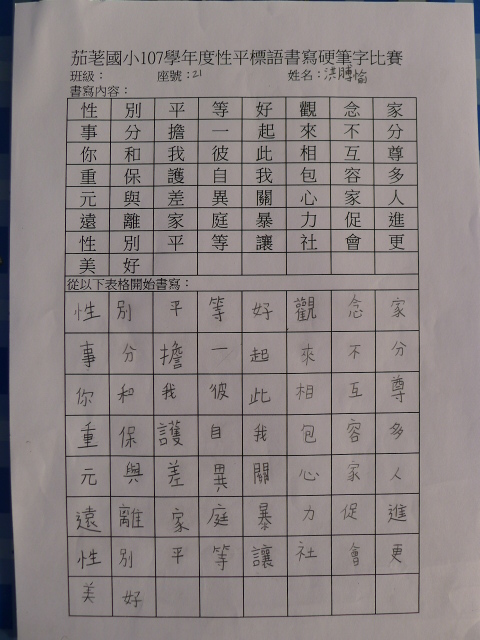 茄荖國小107學年度性平標語書寫硬筆字比賽
班級： 座號：21 姓名：洪
書寫內容：
性別平等好觀念家
事分擔一起來不分
你和我彼此相互尊
重保護自我包容多
元與差異關心家人
遠離家庭暴力促進
性別平等讓社會更
美好
從以下表格開始書寫：
性別平等好觀念家
事分擔一起來不分
你和我彼此相互尊
重保護自我包容多
元與差異關心家人
遠離家庭暴力促進
性別平等讓社會更
美好